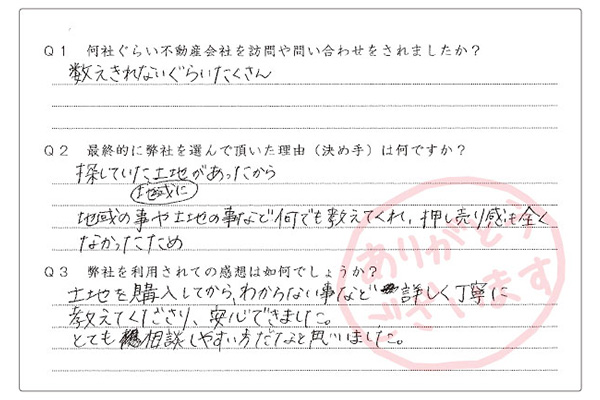 Q1 何社ぐらい不動産会社を訪問や問い合わせをされましたか？
数えきれないぐらいたくさん
Q2 最終的に弊社を選んで頂いた理由（決め手）は何ですか？
探していた土地があったから
地域に
地域の事や土地の事など何でも教えてくれ、押し売り感も全く
なかったため
Q3 弊社を利用されての感想は如何でしょうか？
土地を購入してから、わからない事など詳しく丁寧に
教えてくださり、安心できました。
とても相談しやすい方だなと思いました。
ありがとう
ございます